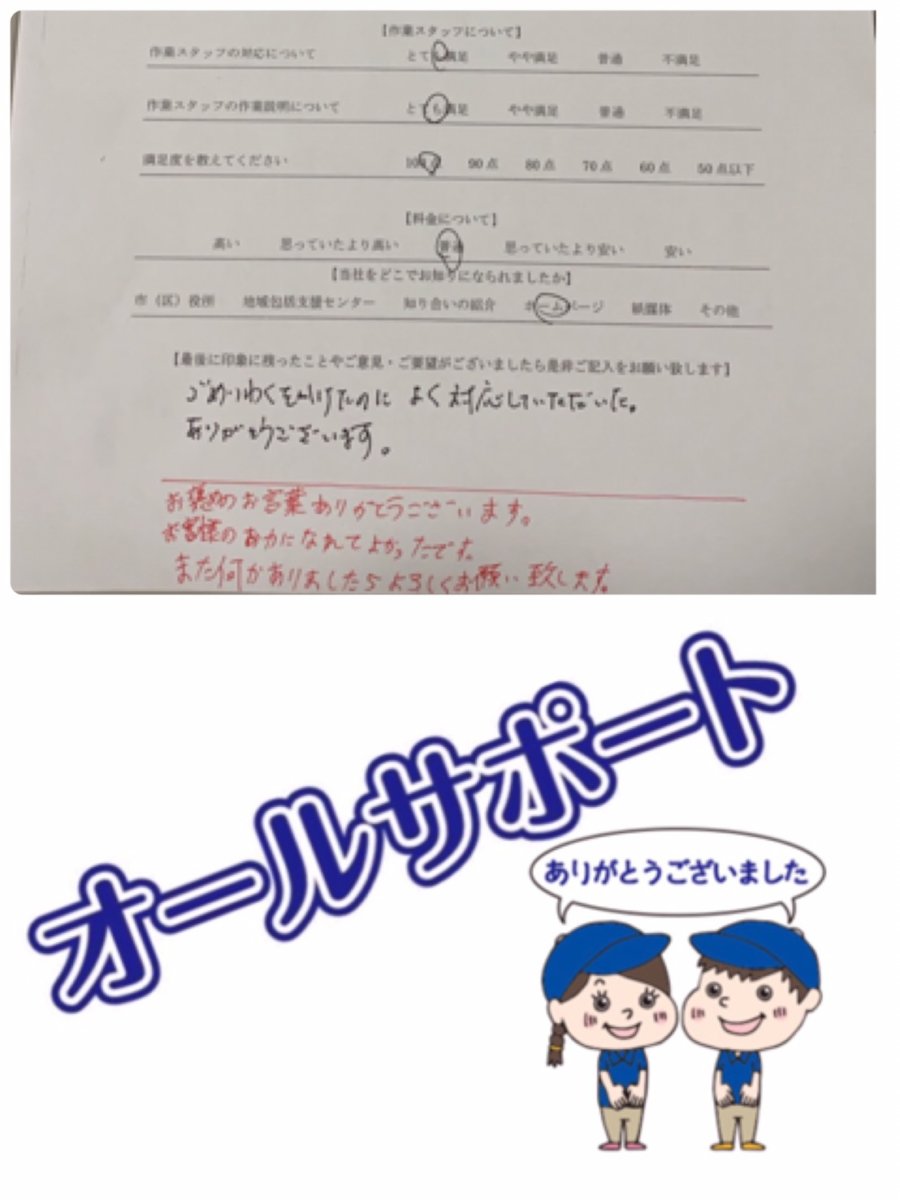 【作業スタッフについて】
作業スタッフの対応について とても満足 やや満足 普通 不満足
作業スタッフの作業説明について とても満足 やや満足 普通 不満足
満足度を教えてください 100点 90点 80点 70点 60点 50点以下
【料金について】
高い 思っていたより高い 普通 思っていたより安い 安い
【当社をどこでお知りになられましたか】
市（区）役所 地域包括支援センター 知り合いの紹介 ホームページ 紙媒体 その他
【最後に印象に残ったことやご意見・ご要望がございましたら是非ご記入をお願い致します】
ごめいわくをかけたのに よく対応していただいた。
ありがとうございます。
お褒めのお言葉ありがとうございます。
お客様のお力になれてよかったです。
また何かありましたらよろしくお願い致します。
オールサポート
ありがとうございました